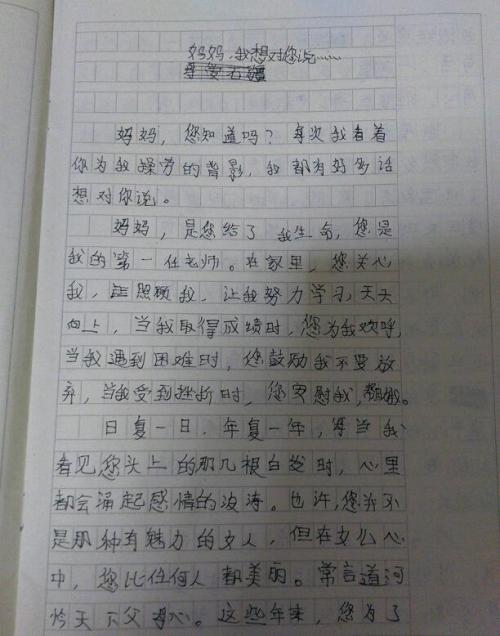 妈妈，我想对您说……
妈妈，您知道吗？每次我看着
你为我操劳的背影，我都有好多话
想对你说。
妈妈，是您给了我生命，您是
我的第一任老师。在家里，您关心
我，照顾我，让我努力学习，天天
向上，当我取得成绩时，您为我欢呼，
当我遇到困难时，您鼓励我不要放
弃，当我受到挫折时，您安慰我，帮助我。
日复一日，年复一年，每当我
看见您头上的那几根白发时，心里
都会涌起感情的波涛。也许，您并不
是那种有魅力的女人，但在女儿心
中，您比任何人都美丽。常言道河
天下父母心。这些年来，您为了